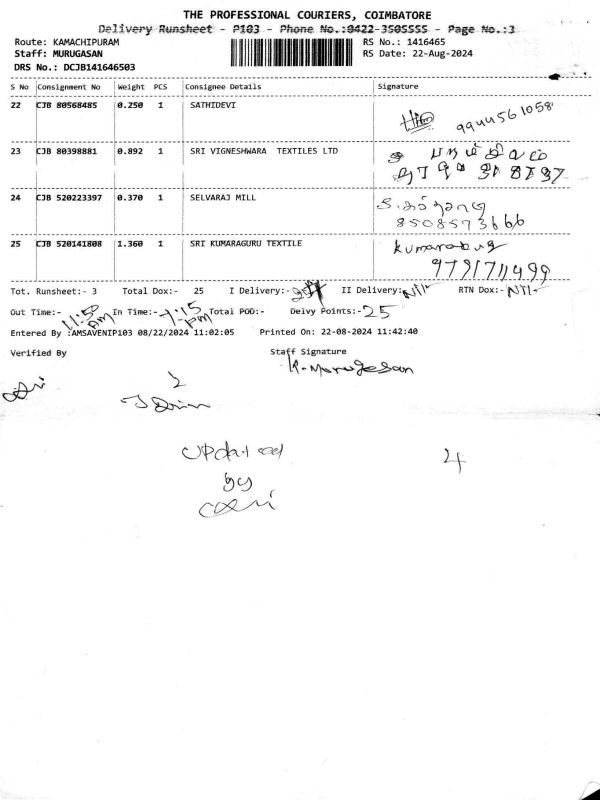 THE PROFESSIONAL COURIERS, COIMBATORE
Delivery Runsheet - P103 - Phone No.:0422-3505555 - Page No.:3
Route: KAMACHIPURAM RS No.: 1416465
Staff: MURUGASAN RS Date: 22-Aug-2024
DRS No.: DCJB141646503
S No Consignment No Weight PCS Consignee Details Signature
22 CJB 80568485 0.250 1 SATHIDEVI 9944561058
23 CJB 80398881 0.892 1 SRI VIGNESHWARA TEXTILES LTD
24 CJB 520223397 0.370 1 SELVARAJ MILL
8508573666
25 CJB 520141808 1.360 1 SRI KUMARAGURU TEXTILE
9791711499
Tot. Runsheet:- 3 Total Dox:- 25 I Delivery:- II Delivery:- Nil- RTN Dox:- Nil-
Out Time:- 11:50 AM In Time:- 7:15 PM Total POD:- Delvy Points:- 25
Entered By :AMSAVENIP103 08/22/2024 11:02:05 Printed On: 22-08-2024 11:42:40
Verified By Staff Signature
K. Murugesan
Updated
by
4